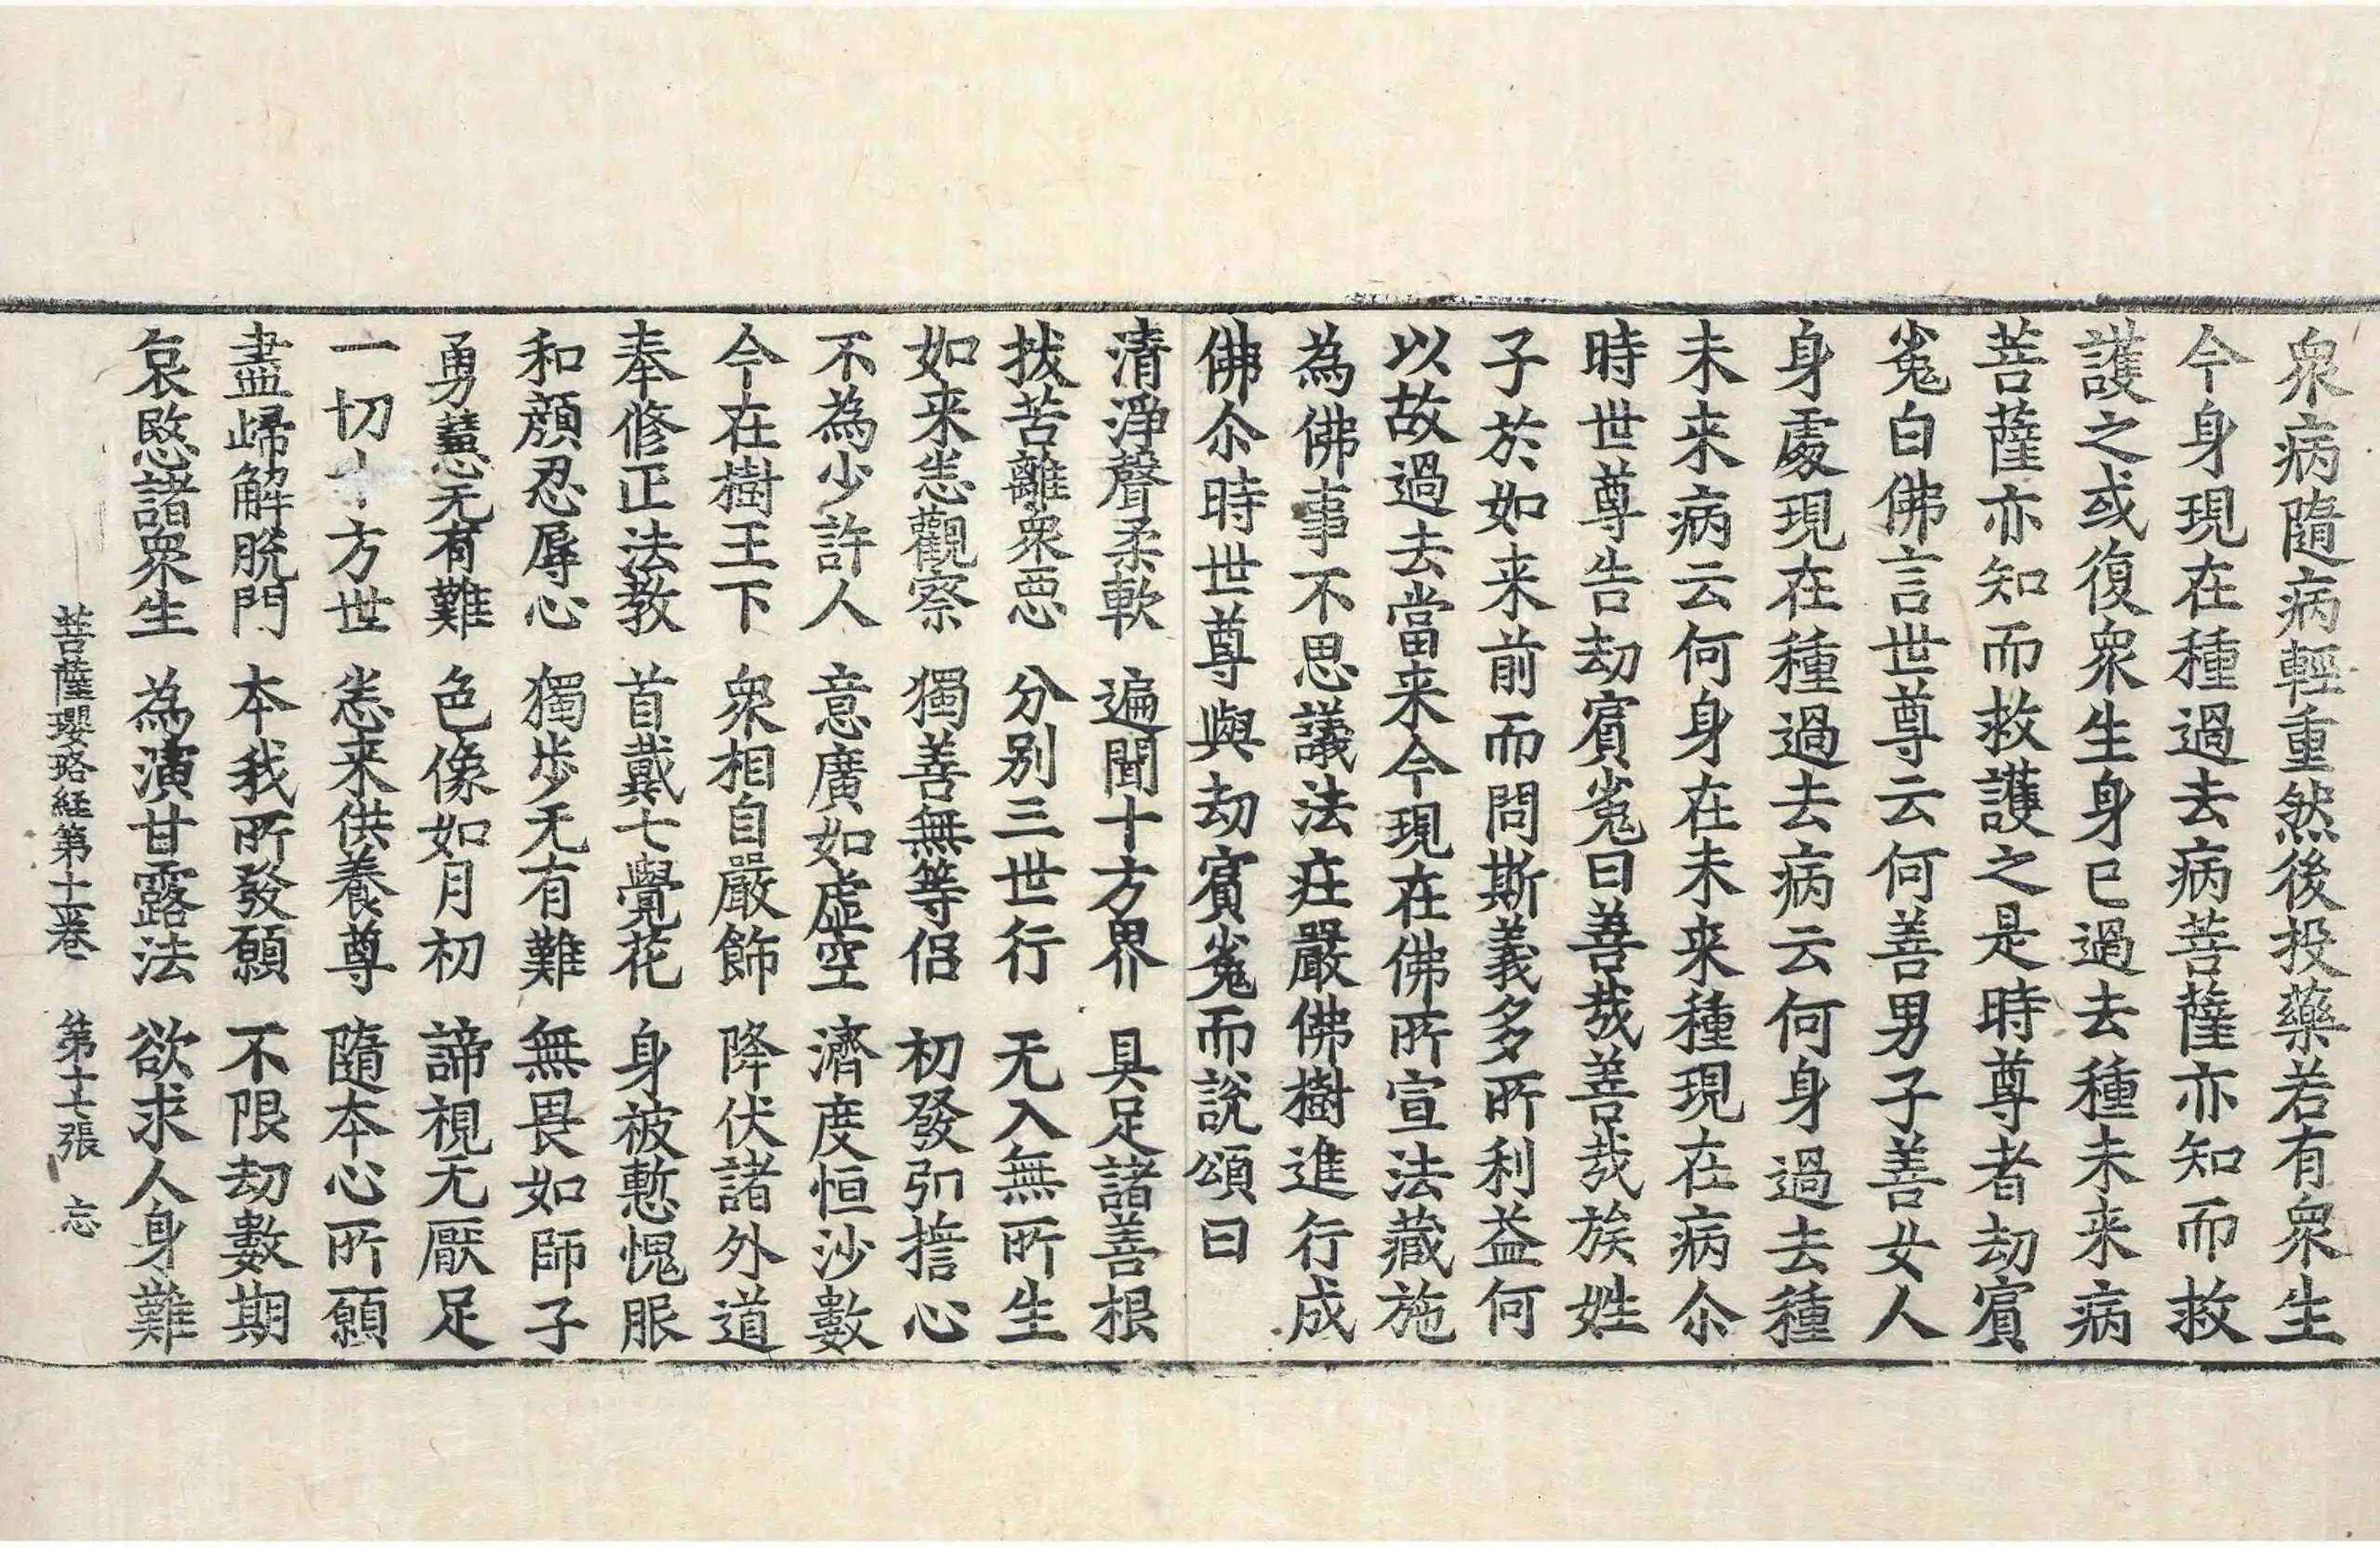 衆病隨病輕重然後投藥若有衆生
今身現在種過去病菩薩亦知而救
護之或復衆生身已過去種未来病
菩薩亦知而救護之是時尊者劫賔
㝹白佛言世尊云何善男子善女人
身處現在種過去病云何身過去種
未来病云何身在未来種現在病尒
時世尊告劫賔㝹曰善哉善哉族姓
子於如来前而問斯義多所利益何
以故過去當来今現在佛所宣法藏施
為佛事不思議法㽵嚴佛樹進行成
佛尒時世尊與劫賔㝹而說頌曰
清淨聲柔軟 遍聞十方界 具足諸善根
拔苦離衆惡 分別三世行 无入無所生
如来悉觀察 獨善無等侣 初發弘誓心
不為少許人 意廣如虛空 濟度恒沙數
今在樹王下 衆相自嚴飾 降伏諸外道
奉修正法教 首戴七覺花 身被慙愧服
和顔忍辱心 獨步无有難 無畏如師子
勇慧无有難 色像如月初 諦視无厭足
一切十方世 悉来供養尊 隨本心所願
盡歸解脫門 本我所發願 不限劫數期
哀愍諸衆生 為演甘露法 欲求人身難
菩薩瓔珞経第十一卷 第十七張 忘